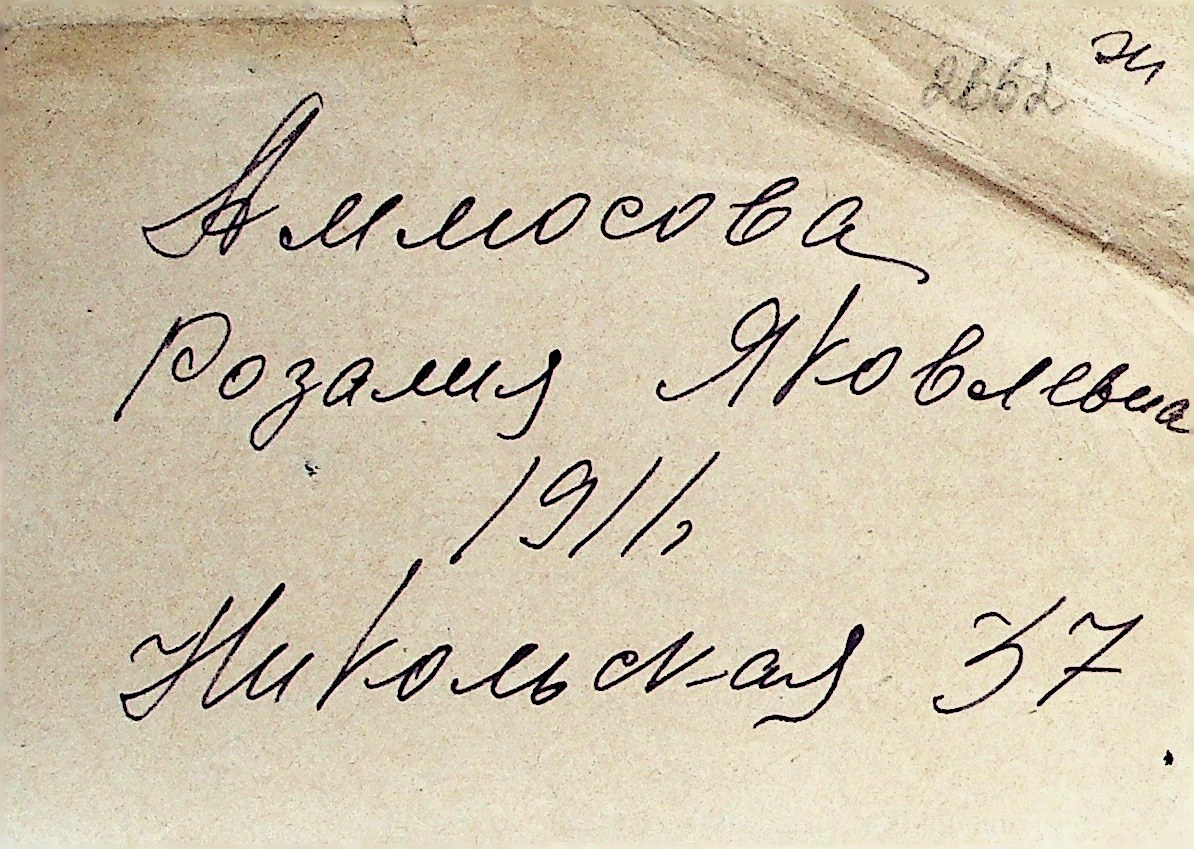 2662
Аммосова
Розалия Яковлевна
1911,
Никольская 37